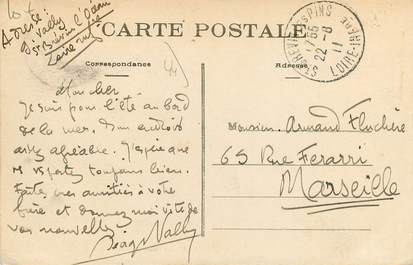 Adresse:
S. Valby
St Brévin l'Océan
Loire infre
CARTE POSTALE
Correspondance
Adresse
ST BREVIN LES PINS
22 -8
11
LOIRE-INFRE
44
Mon cher
Je suis pour l'été au bord
de la mer. Un endroit
assez agréable. J'espère que
vs portez toujours bien.
Faites mes amitiés à votre
père et donnez moi vite de
vos nouvelles.
Serge Valby
Monsieur Armand
65 Rue Ferarri
Marseille